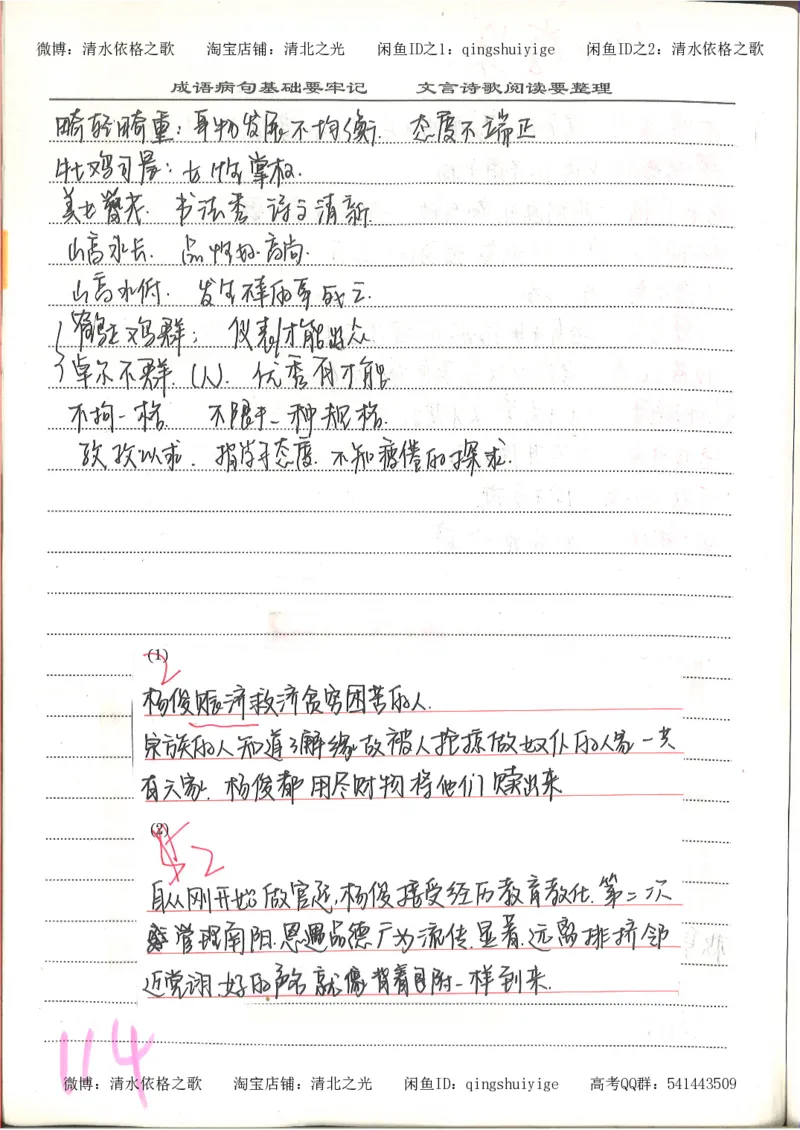 微博：清水依格之歌 淘宝店铺：清北之光 闲鱼ID之1：qingshuiyige 闲鱼ID之2：清水依格之歌
成语病句基础要牢记 文言诗歌阅读要整理
畸轻畸重：事物发展不均衡. 态度不端正
牝鸡司晨：女性掌权.
美女簪花. 书法秀 诗文清新.
山高水长. 品性好.高尚.
山高水低. 发生不幸的事 死亡.
鹤立鸡群： 仪表才能出众
卓尔不群.(人). 优秀有才能
不拘一格. 不限于一种规格.
孜孜以求. 指学习态度. 不知疲倦的探求.
(1)
2
杨俊赈济救济贫穷困苦的人.
宗族的人知道了解缘故被人抢掠做奴仆的人家一共
有六家. 杨俊都用尽财物将他们赎出来
(2)
2
自从刚开始做官起,杨俊接受经历教育教化.第二次
管理南阳.恩遇品德广为流传.显著.远离排挤邻
近党诩.好的声名就像背着 附一样到来.
114
微博：清水依格之歌 淘宝店铺：清北之光 闲鱼ID：qingshuiyige 高考QQ群：541443509